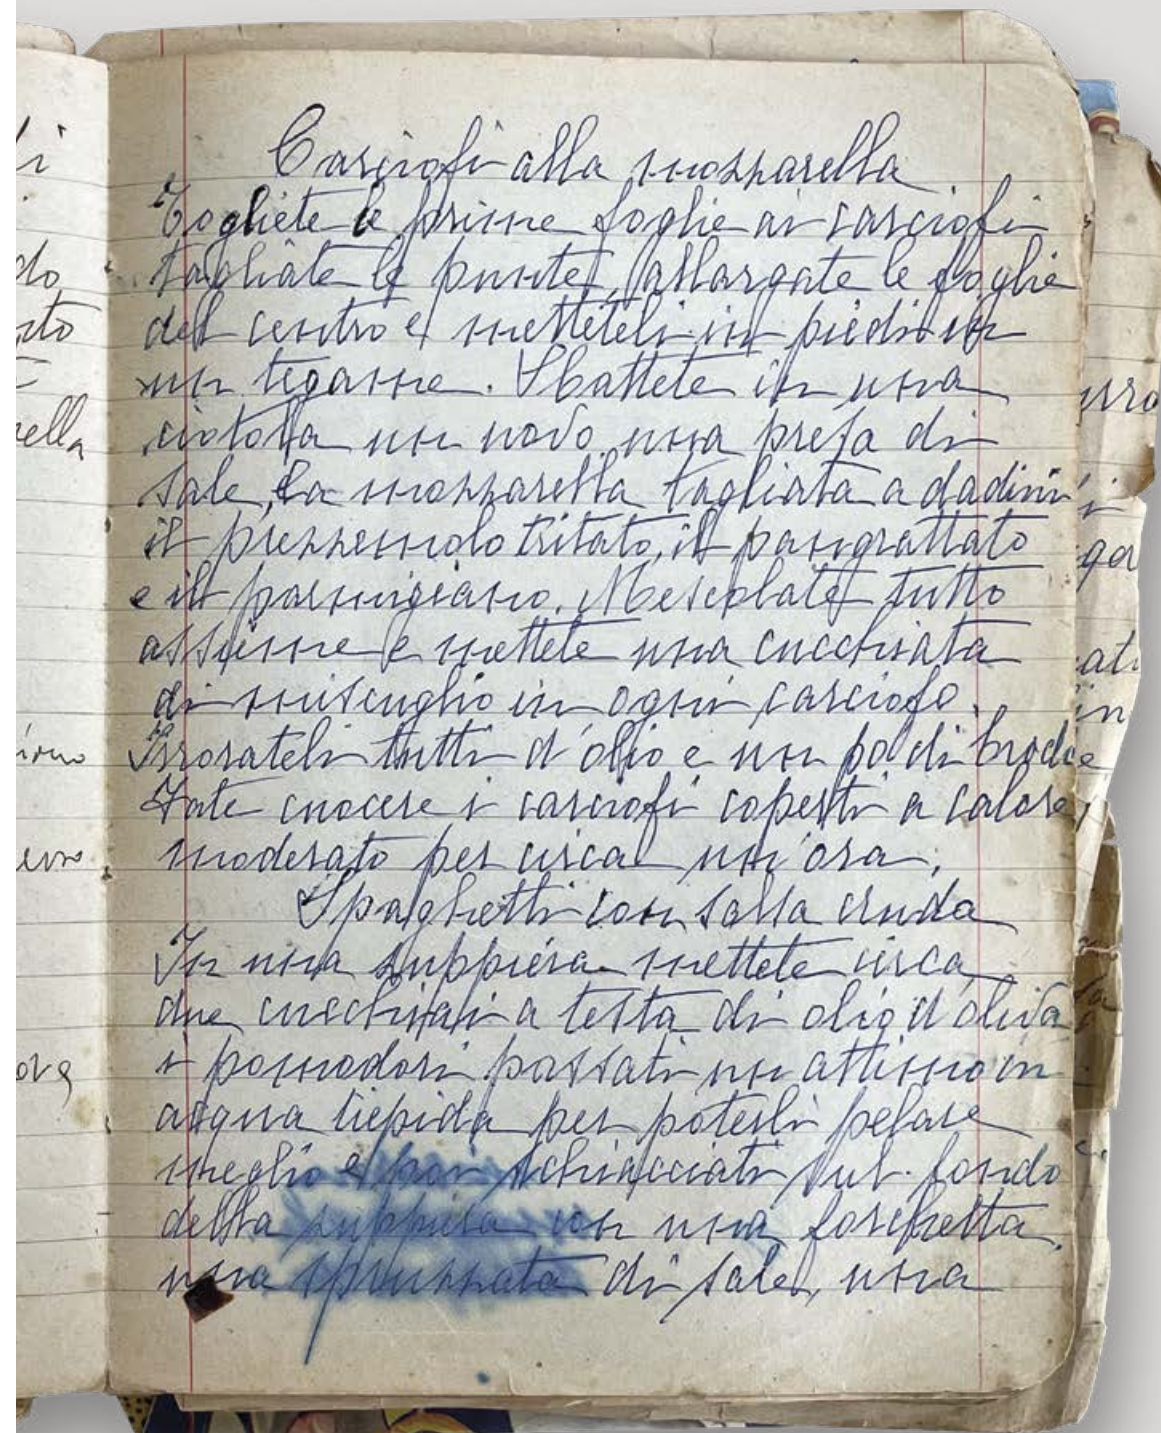 Carciofi alla mozzarella
Togliete le prime foglie ai carciofi
tagliate le punte, allargate le foglie
del centro e metteteli in piedi in
un tegame. Sbattete in una
ciotola un uovo una presa di
sale, la mozzarella tagliata a dadini
il prezzemolo tritato, il pangrattato
e il parmigiano. Mescolate tutto
assieme e mettete una cucchiata
di miscuglio in ogni carciofo.
Irrorateli tutti d'olio e un pò di brodo
Fate cuocere i carciofi coperti a calore
moderato per circa un'ora,
Spaghetti con salsa cruda
In una zuppiera mettete circa
due cucchiai a testa di olio d'oliva
i pomodori passati un attimo in
acqua tiepida per poterli pelare
meglio e poi schiacciati sul fondo
della zuppiera con una forchetta.
una spruzzata di sale, una
do
sto
rella
ova